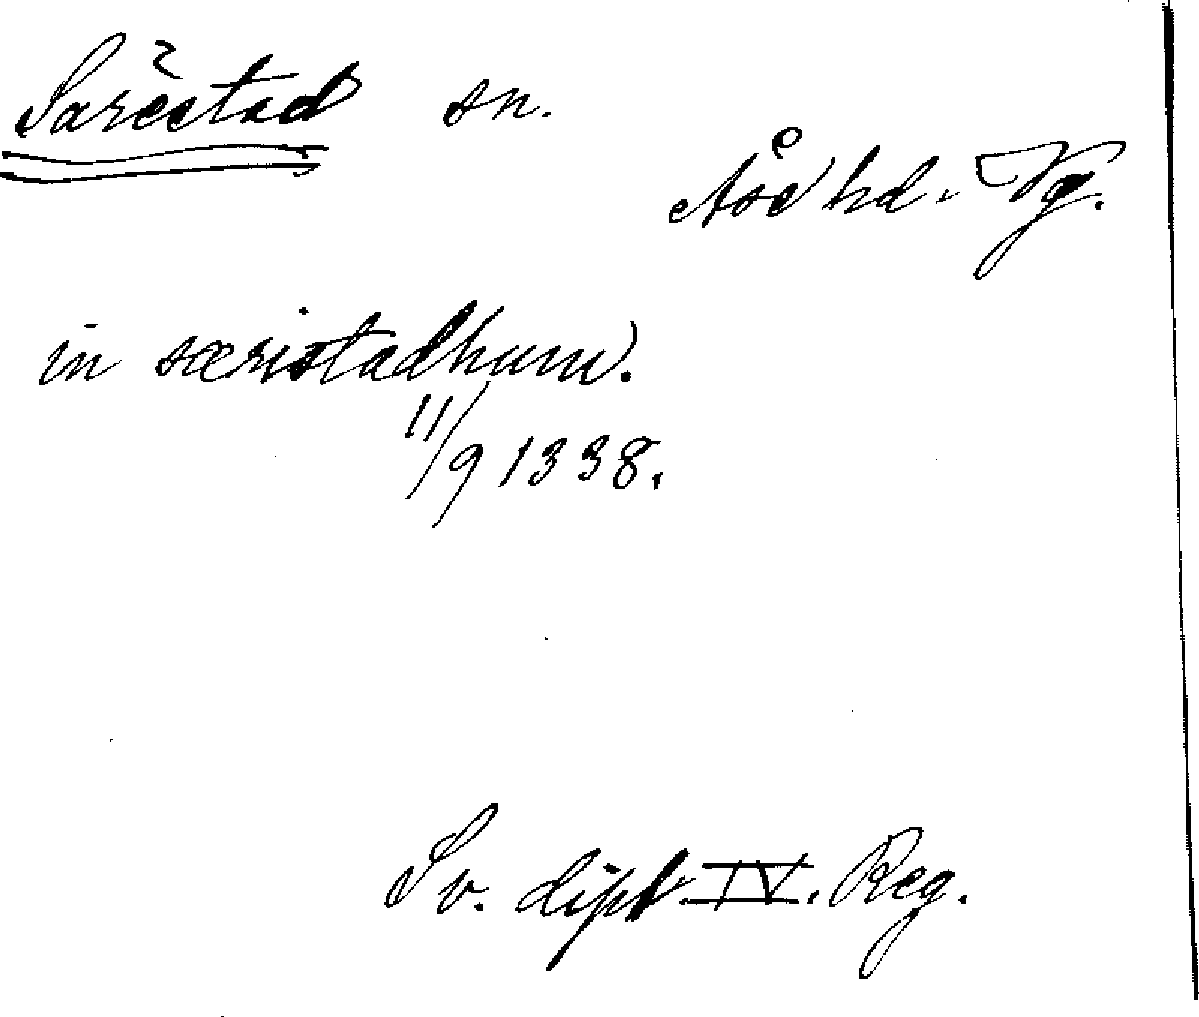 Särestad sn.
Åse hd. Vg.
in særistadhum.
11/9 1338.
Sv. dipl. IV. Reg.